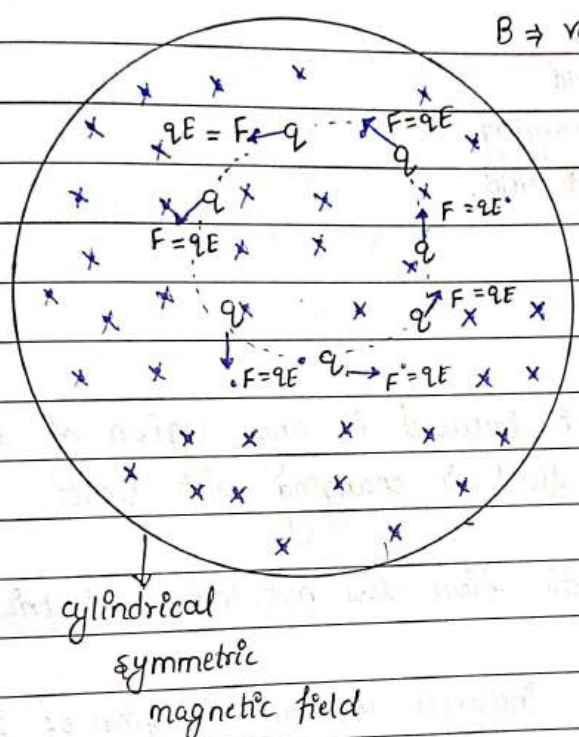 B ⇒
qE = F q
F = qE
q
q
F = qE
F = qE
q
q
F = qE
q
F = qE
q
F = qE
q
F = qE
cylindrical
symmetric
magnetic field